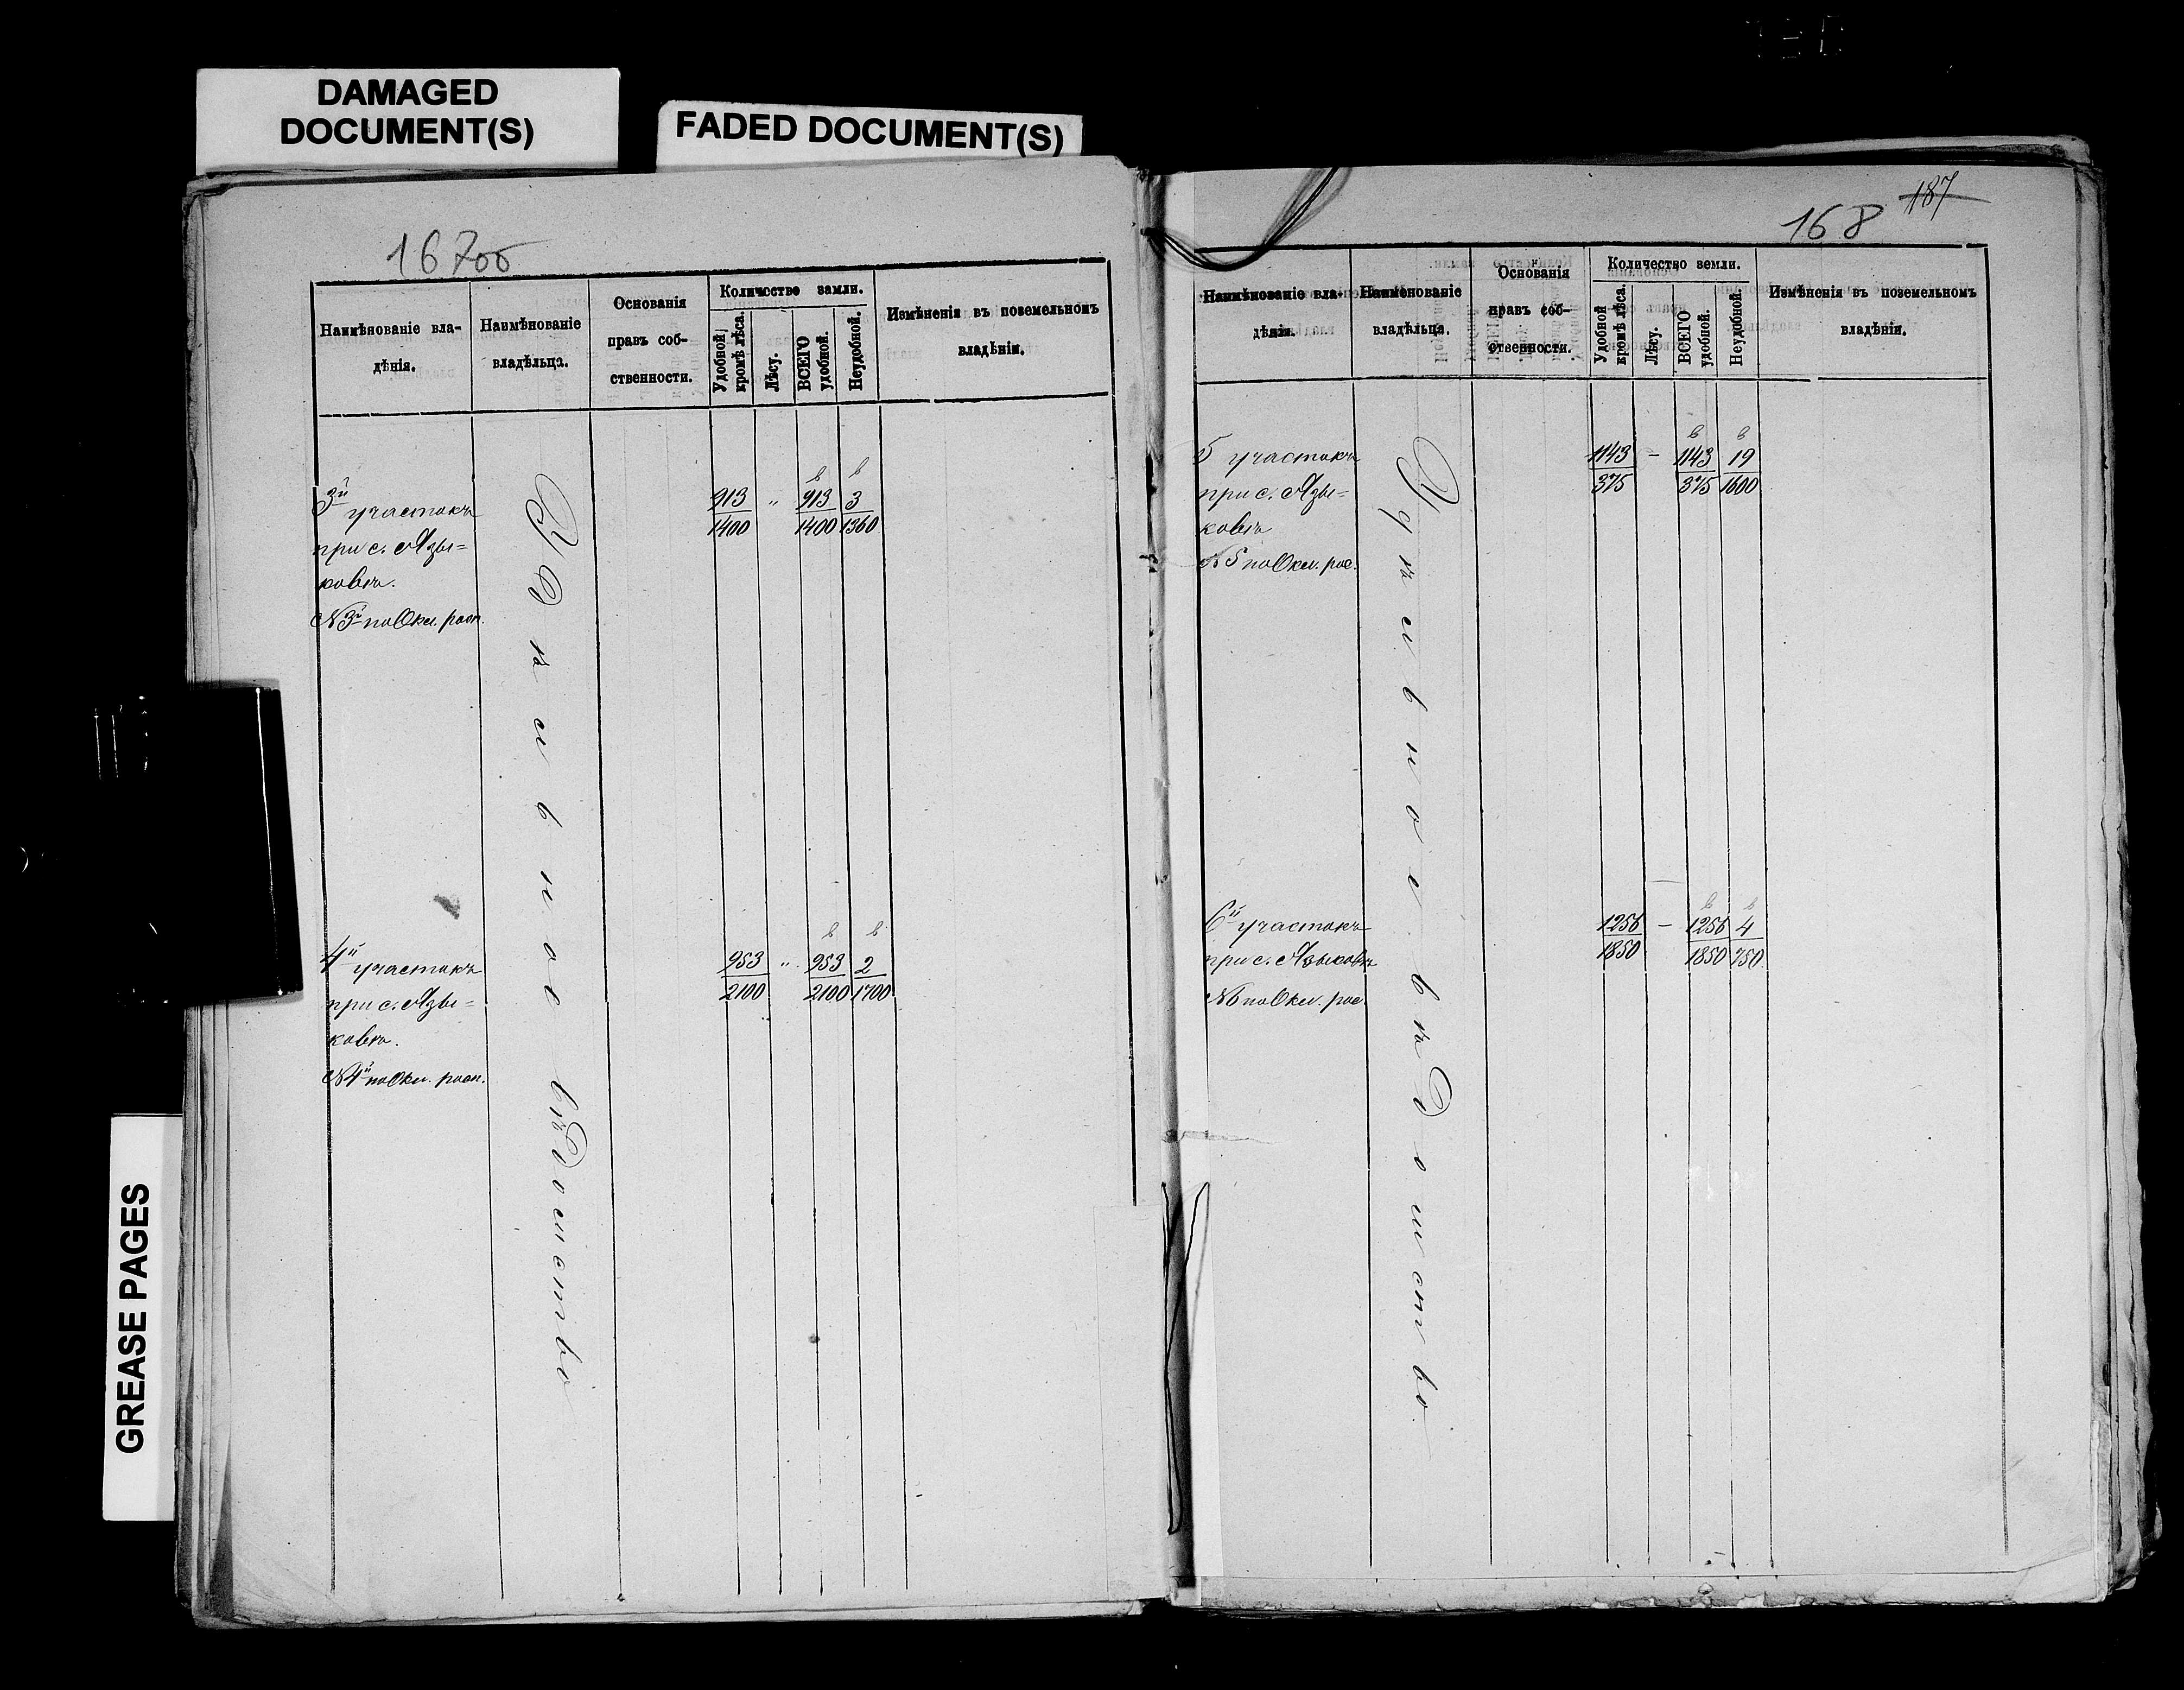 DAMAGED
DOCUMENT(S)
FADED DOCUMENT(S)
GREASE PAGES
167об
Наимѣнованіе вла-
дѣнія.
Наимѣнованіе
владѣльца.
Основанія
правъ соб-
ственности.
Количество земли.
Удобной,
кромѣ лѣса.
Лѣсу.
ВСЕГО
удобной.
Неудобной.
Измѣненія въ поземельномъ
владѣніи.
3й участокъ
при с. Язы=
ковѣ.
N 3й по Окл. росп.
Удѣльное вѣдомство
в в
913 " 913 3
1400 1400 1360
4й участокъ
при с. Язы=
ковѣ.
N 4й по Окл. росп.
в в
953 " 953 2
2100 2100 1700
187
168
Наимѣнованіе вла-
дѣнія.
Наимѣнованіе
владѣльца.
Основанія
правъ соб-
ственности.
Количество земли.
Удобной
кромѣ лѣса.
Лѣсу.
ВСЕГО
удобной.
Неудобной.
Измѣненія въ поземельномъ
владѣніи.
5 участокъ
при с. Язы=
ковѣ
N 5 по Окл. рос.
Удѣльное вѣдомство
в в
1143 – 1143 19
375 375 1600
6й участокъ
при с. Языковѣ
N 6 по Окл. рос.
в в
1256 – 1256 4
1850 1850 750